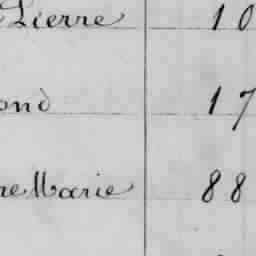 Pierre 10
ond 17
re Marie 88